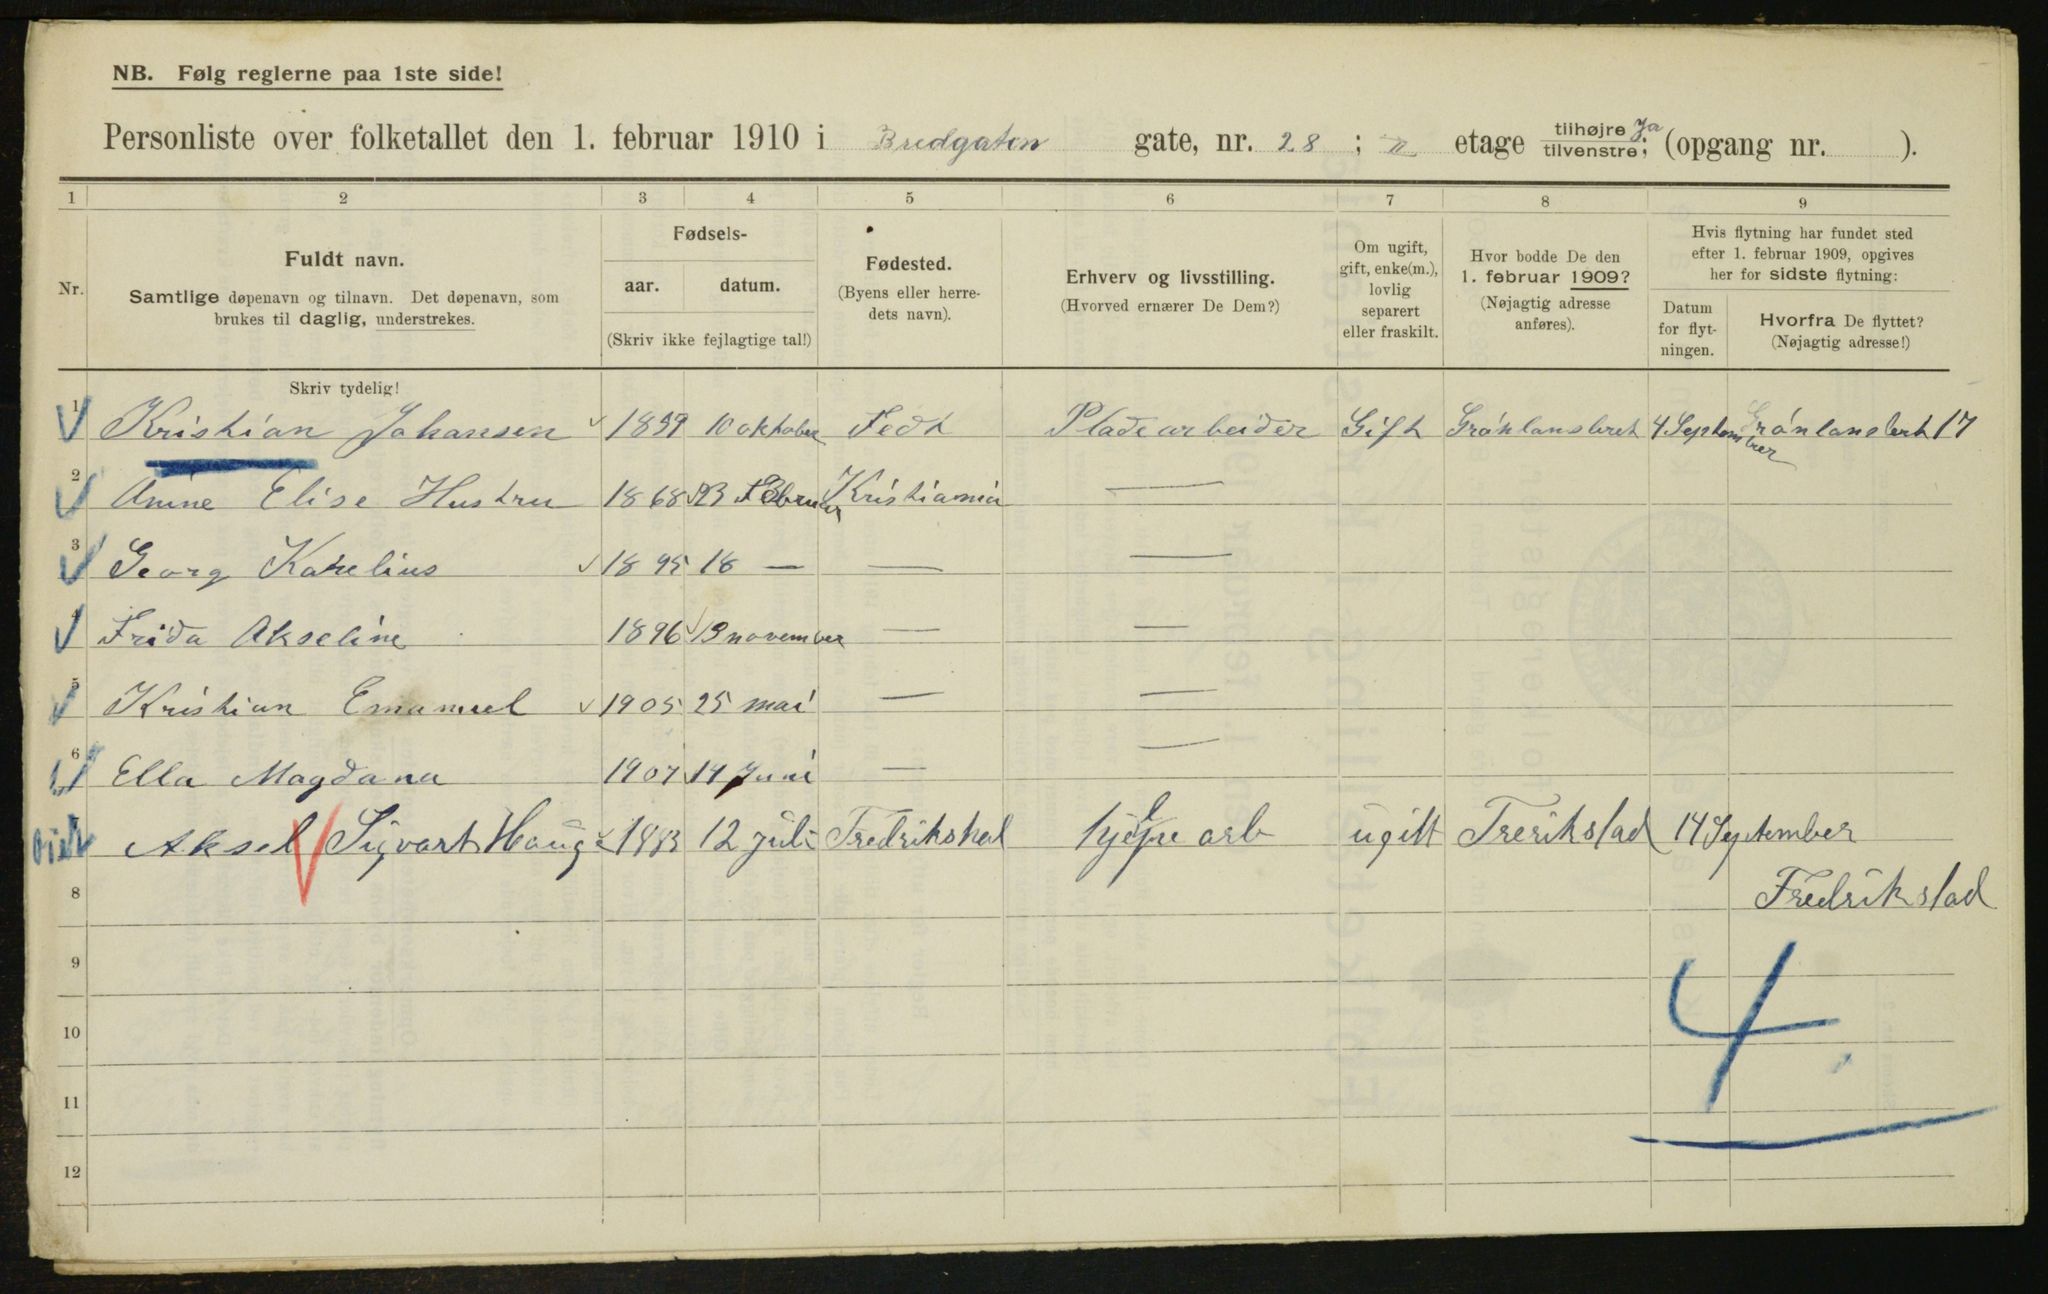 NB. Følg reglerne paa 1ste side!
Personliste over folketallet den 1. februar 1910 i Bredgaten gate, nr. 28 ; II etage tilhøjre Ja tilvenstre; (opgang nr. ).
1 2 3 4 5 6 7 8 9
Nr.
Fuldt navn.
Samtlige døpenavn og tilnavn. Det døpenavn, som
brukes til daglig, understrekes.
Fødsels-
aar. datum.
(Skriv ikke fejlagtige tal!)
Fødested.
(Byens eller herre-
dets navn).
Erhverv og livsstilling.
(Hvorved ernærer De Dem?)
Om ugift,
gift, enke(m.),
lovlig
separert
eller fraskilt.
Hvor bodde De den
1. februar 1909?
(Nøjagtig adresse
anføres).
Hvis flytning har fundet sted
efter 1. februar 1909, opgives
her for sidste flytning:
Datum
for flyt-
ningen.
Hvorfra De flyttet?
(Nøjagtig adresse!)
Skriv tydelig!
1 Kristian Johansen 10 oktober Pladearbeider Gift Grönlansleret 4 September Grönlansleret 17
2 Anine Elise Hustru 1868 23 Februar Kristiania —
3 Georg Karelius 1895 18 — — —
4 Frida Akseline 1896 13 november — —
5 Kristian Emanuel 1905 25 mai — —
6 Ella Magdana 1907 14 Juni — —
Aksel Sigvart Hauge 1883 12 juli Fredrikshal hjelpe arb ugift Frerikstad 14 September
8 Fredrikstad
9
10
11
12
4